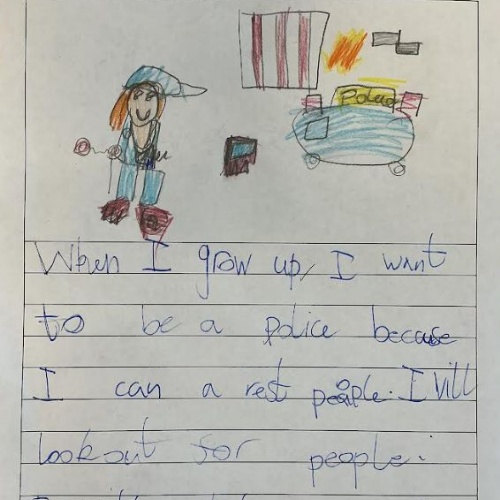 Police
When I grow up, I want
to be a police because
I can a rest people. I Vill
look out for people.